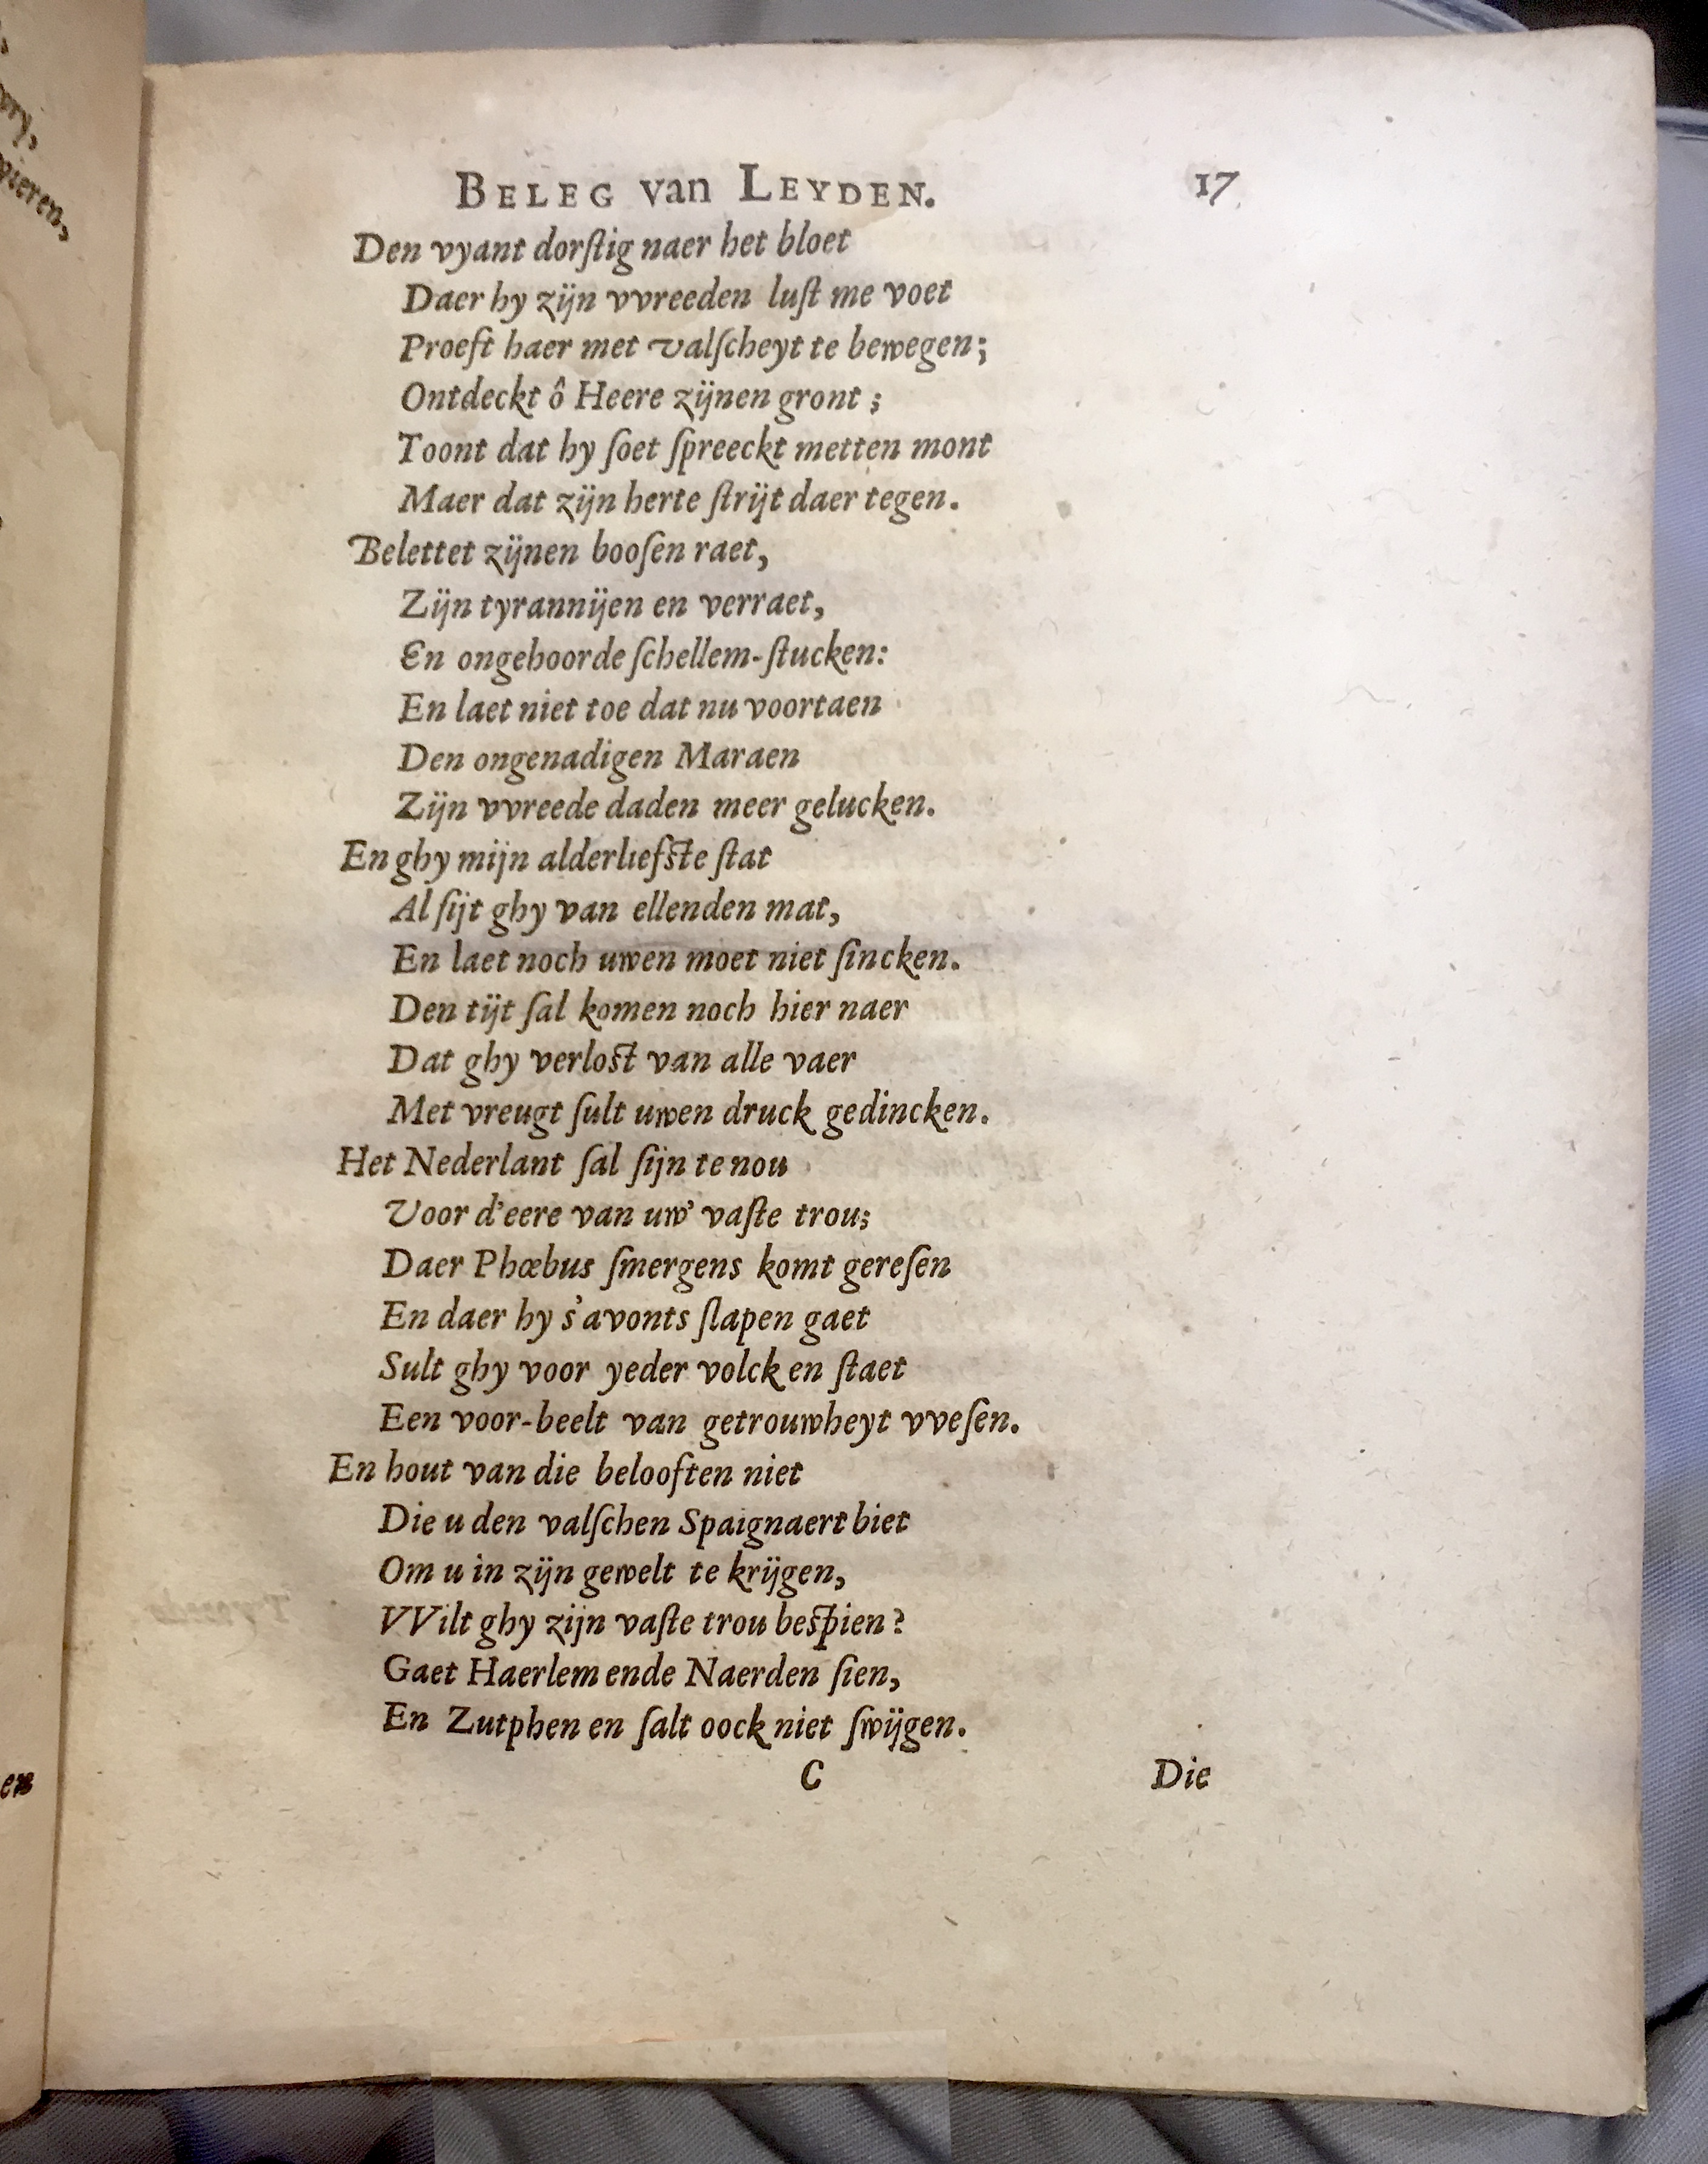 BELEG van LEYDEN. 17
Den vyant dorſtig naer het bloet
Daer hy zijn vvreeden luſt me voet
Proeft haer met valſcheyt te bewegen;
Ontdeckt ô Heere zijnen gront ;
Toont dat hy ſoet ſpreeckt metten mont
Maer dat zijn herte ſtrijt daer tegen.
Belettet zijnen booſen raet,
Zijn tyrannijen en verraet,
En ongehoorde ſchellem-ſtucken:
En laet niet toe dat nu voortaen
Den ongenadigen Maraen
Zijn vvreede daden meer gelucken.
En ghy mijn alderliefſte ſtat
Al ſijt ghy van ellenden mat,
En laet noch uwen moet niet ſincken.
Den tijt ſal komen noch hier naer
Dat ghy verloſt van alle vaer
Met vreugt ſult uwen druck gedincken.
Het Nederlant ſal ſijn te nou
Voor d'eere van uw' vaſte trou;
Daer Phœbus ſmergens komt gereſen
En daer hy s'avonts ſlapen gaet
Sult ghy voor yeder volck en ſtaet
Een voor-beelt van getrouwheyt vveſen.
En hout van die belooften niet
Die u den valſchen Spaignaert biet
Om u in zijn gewelt te krijgen,
VVilt ghy zijn vaſte trou beſpien?
Gaet Haerlem ende Naerden ſien,
En Zutphen en ſalt oock niet ſwijgen.
C Die